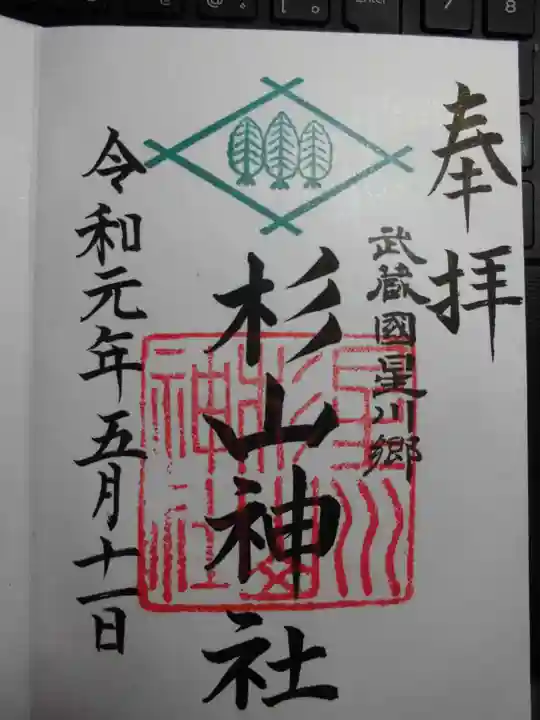 奉拝
武蔵國星川郷
杉山神社
星川杉山神社
令和元年五月十一日